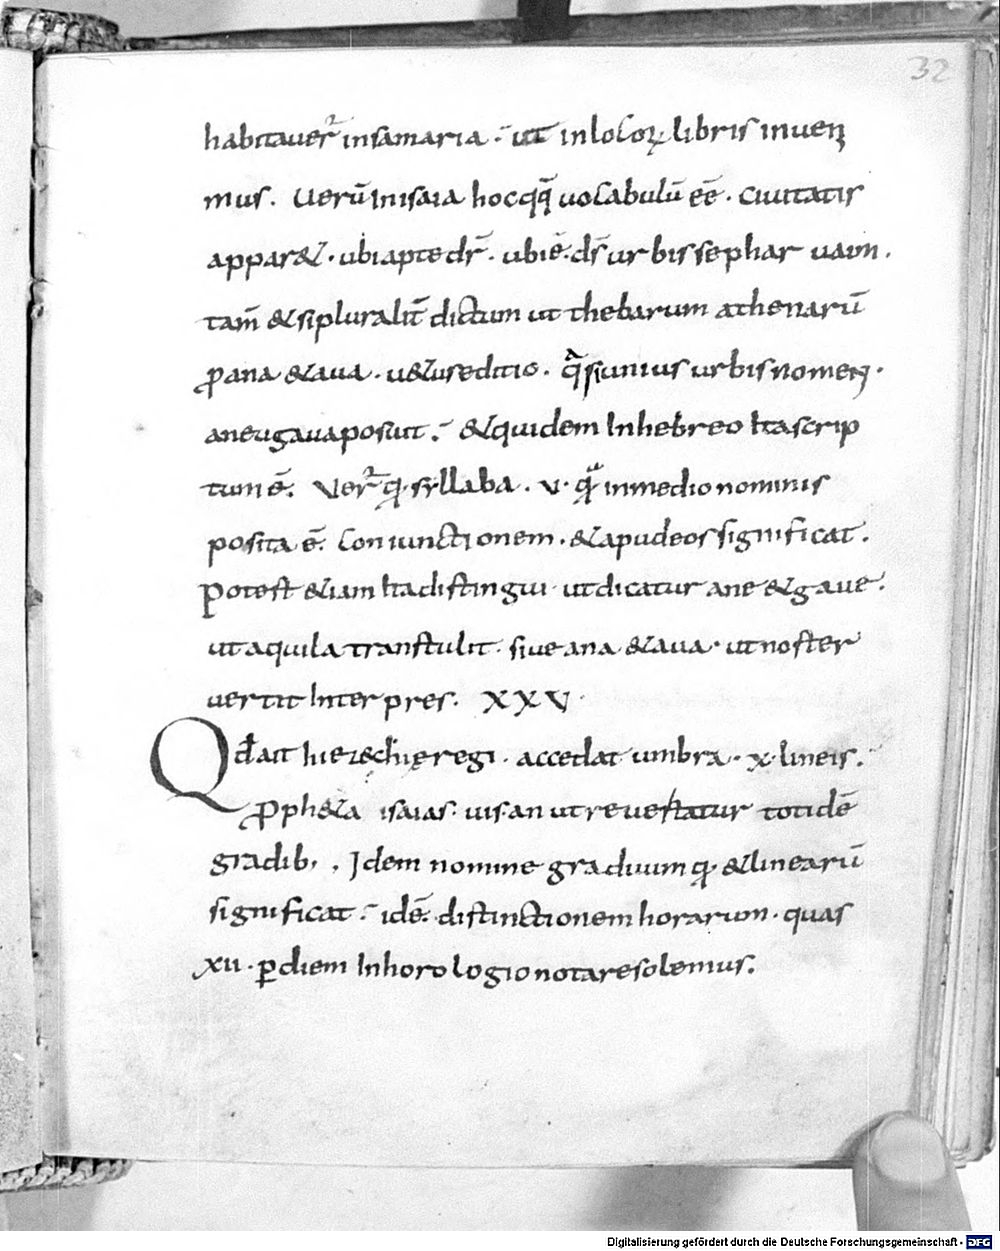 32
habitauer̃ insamaria · ut inlocoꝝ libris inuenꝫ
mus . Uerū inisaia hocqq̃ uocabulū eē · ciuitatis
appar& · ubiaptedr̃ · ubiē · ds̄ urbis sephar uaim .
tam̄ &sipluralit̄ dictum ut thebarum athenarū
ꝓana &aua · u&useditio · q̃siunius urbis nomen ·
aneugauaposuit · &quidem Inhebreo Itascrip
tum ē . Ver̃ q syllaba . v · q inmedio nominis
posita ē . Coniunctionem . &apudeos significat .
Potest &iam Itadistingui · utdicatur ane &gaue .
ut aquila transtulit · siue ana &aua · ut noster
uertit Interpres . XXV ·
Qđait hiezechięregi . accedat umbra · x · lineis .
ꝓph&a isaias · uis·an ut reuertatur totidē
gradib; . Idem nomine graduum q · &linearū
significat · idē · distinctionem horarum · quas
xii · ꝑdiem Inhorologio notaresolemus .
Digitalisierung gefördert durch die Deutsche Forschungsgemeinschaft - DFG